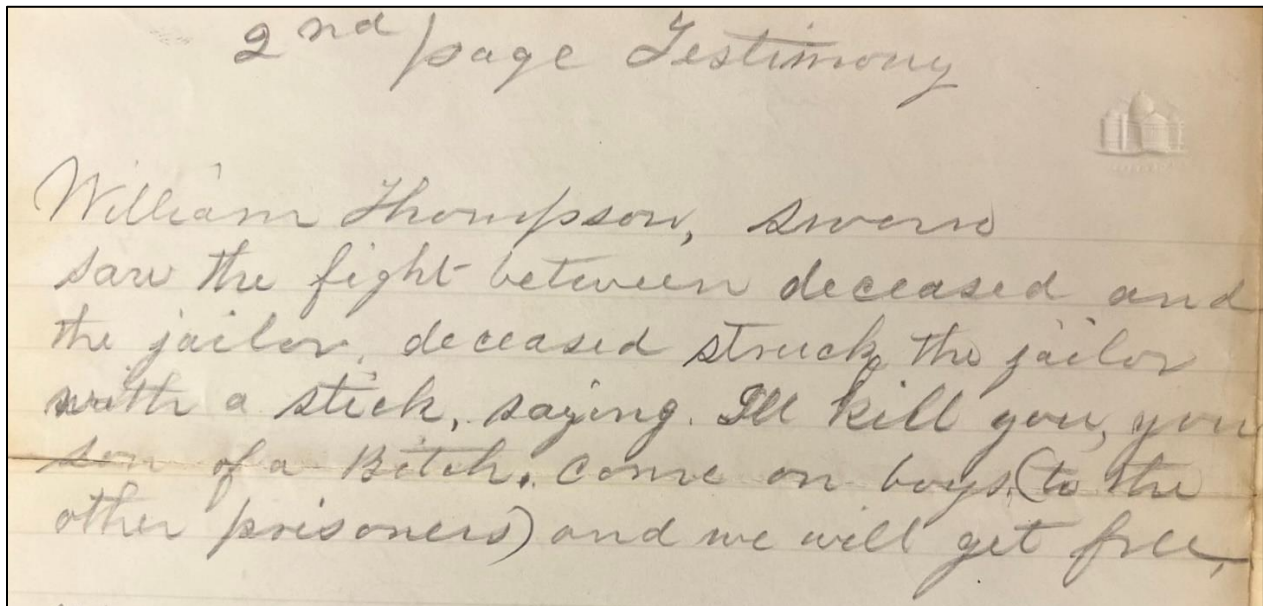 2nd page Testimony
William Thompson, sworn
saw the fight between deceased and
the jailor, deceased struck the jailor
with a stick, saying. Ill kill you, you
son of a Bitch. come on boys (to the
other prisoners) and we will get free,